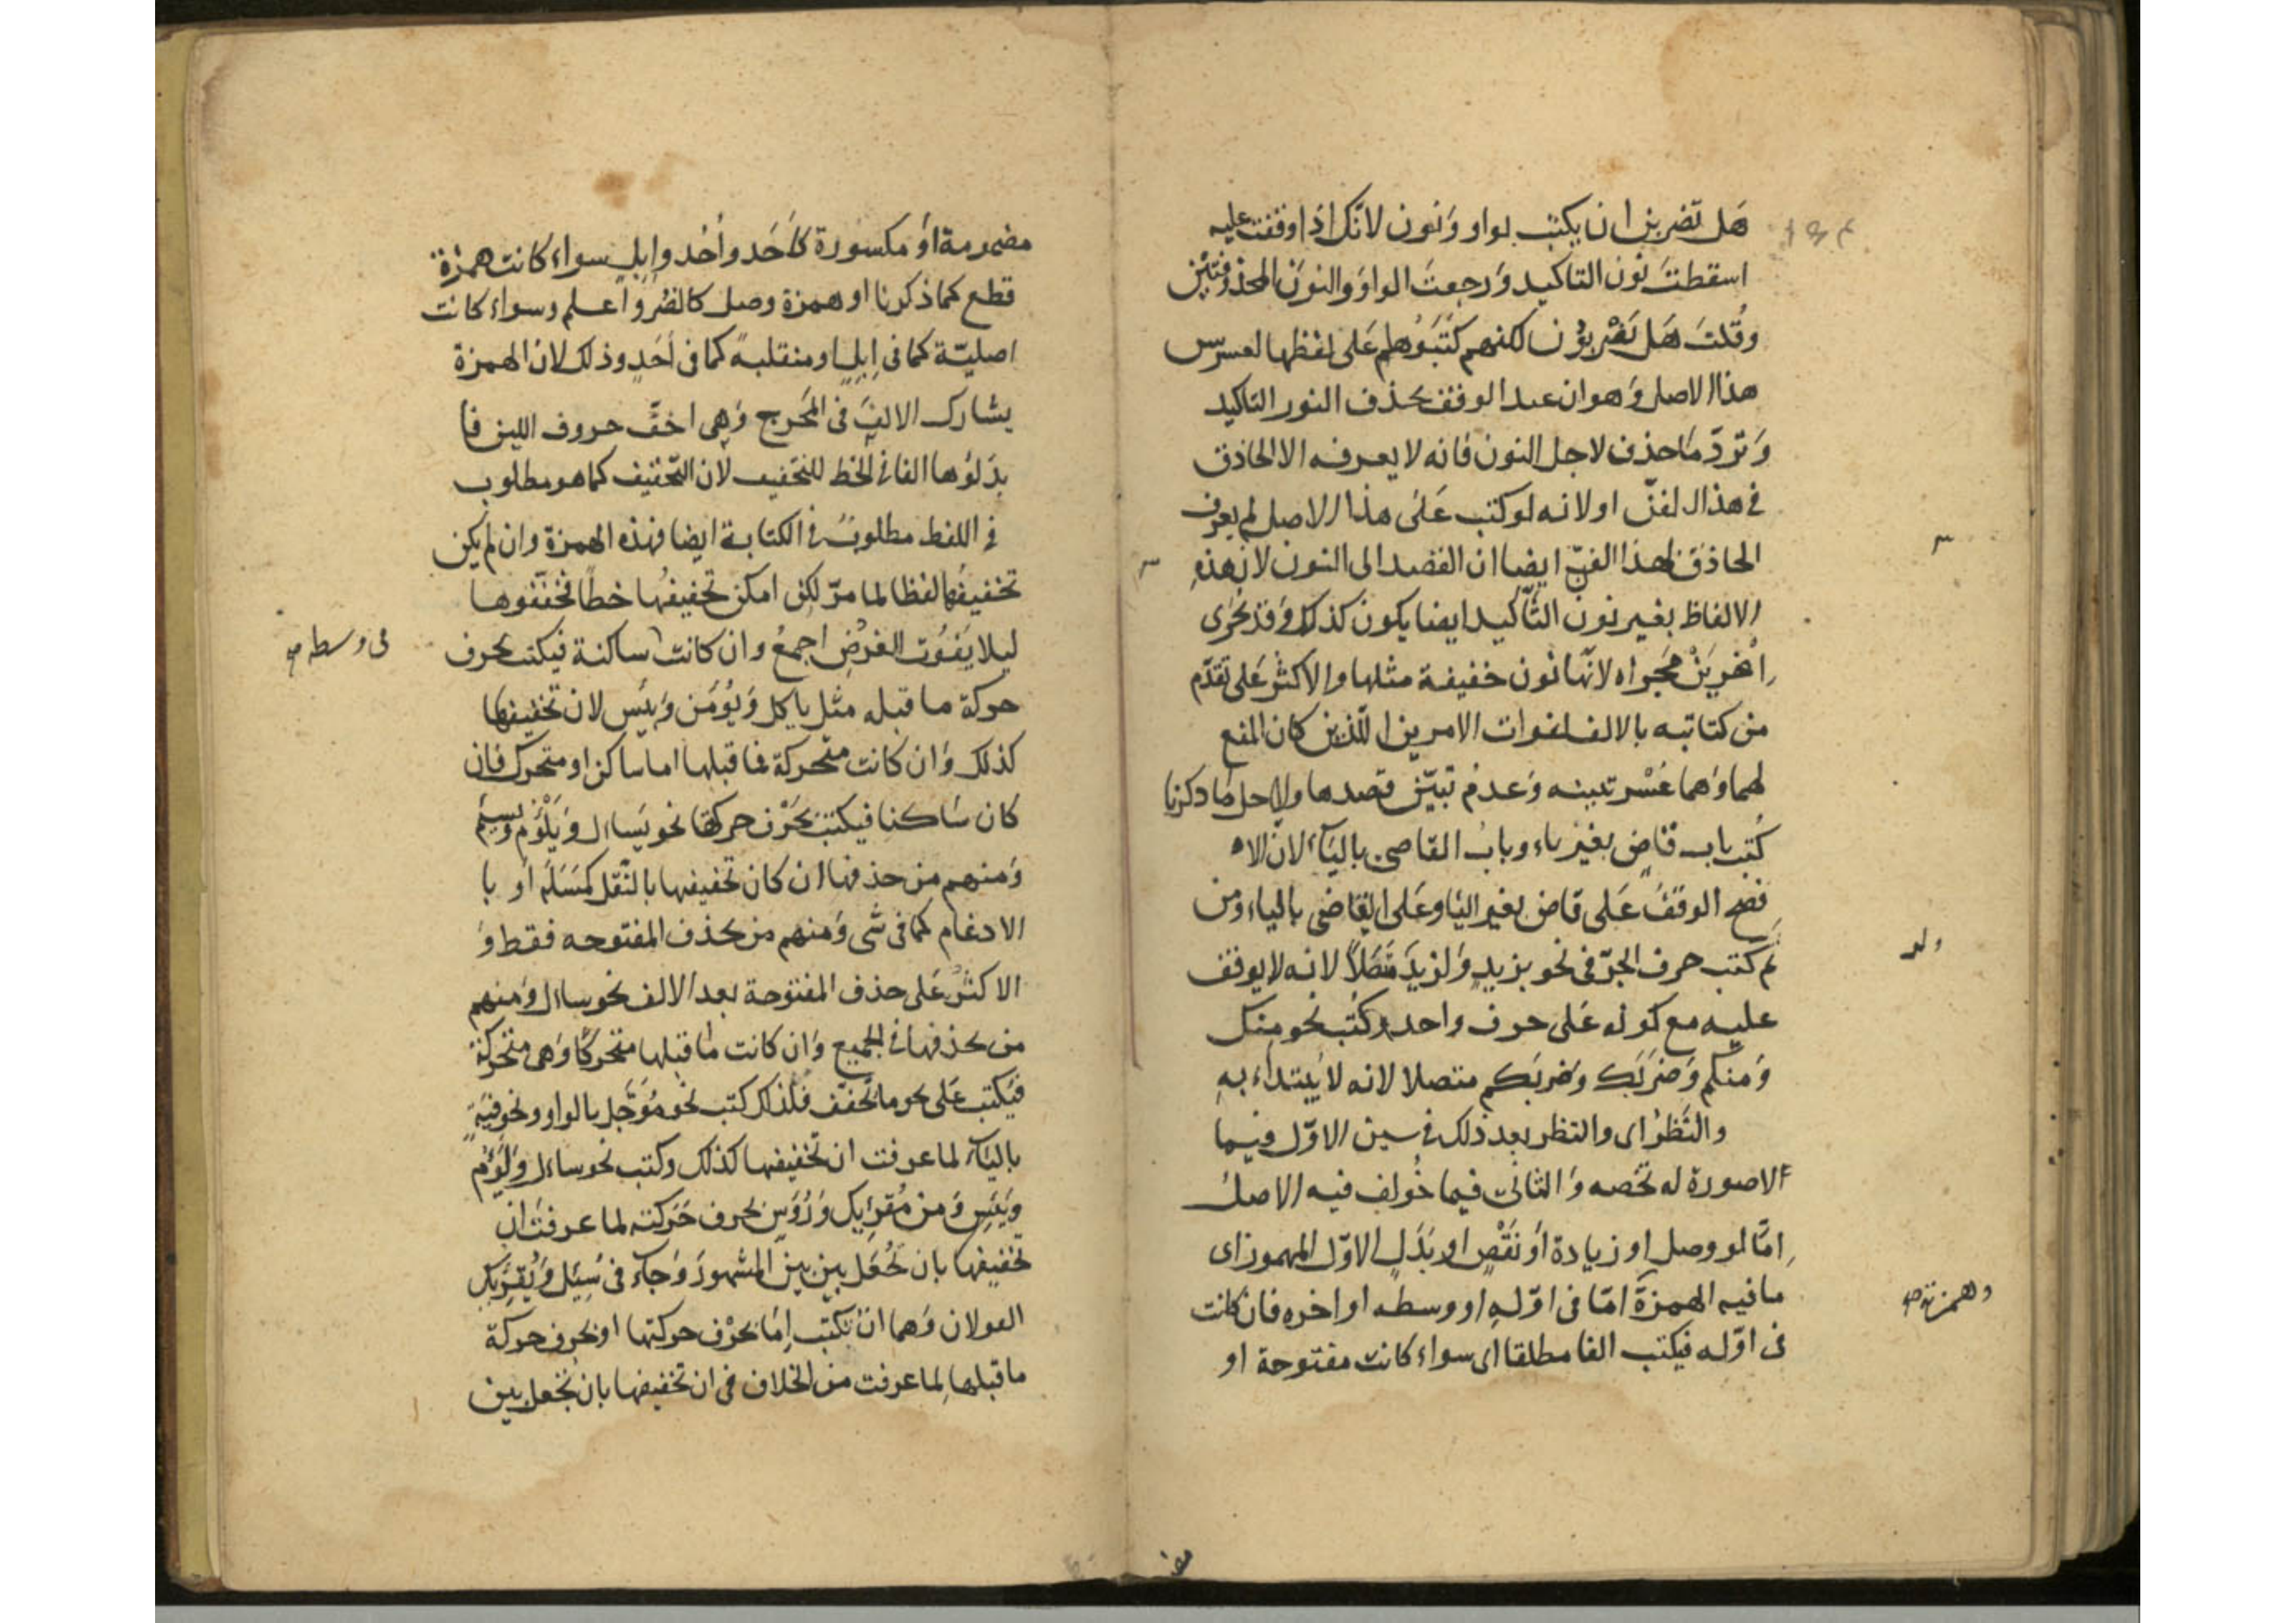 هَل تضربن ان يكتب بواو وَنون لانّك اذا وقفت عليه
اسقطتَ نون التاكيد وَرجعتَ الواوَ والنونَ المحذوفتين
وقُلتَ هَل تَضْربُون لكنهم كتبَوُها على لفظها لعسر
هذا الاصل وَهو ان عند الوقف يحذف النور التاكيد
وَتردّ مَا حذف لاجل النون فانه لا يعرفه الا الحاذق
في هذا الفنّ او لانه لو كتب عَلى هذا الاصل لم يعرف
الحاذق لهذا الفنّ ايضا ان القصد الى النون لان هذهِ
الالفاظ بغير نون التّاكيد ايضا يكون كذلك وَقد يُجرى
اضربَنْ مَجراه لانّها نون خفيفة مثلها والاكثر عَلى تقدّم
من كتابته بالالف لفوات الامرين اللّذين كان المنع
لهما وَهما عُسْر تبينه وَعدم تبيّن قصدها ولاجل مَا ذكرنا
كُتب باب قاضٍ بغير ياء وبابُ القاضى باليَاء لان الا
فصح الوقفُ عَلى قاض بغير اليَا وعَلى القاضى بالياء ومن
ثم كتب حرف الجرّ فى نحو بزيدٍ وَلزيدٍ متّصلاً لانه لا يوقف
عليه مع كونه عَلى حرف واحد وكُتب نحو منك
وَمنكم وَضرَبَك وَضربَكم متصلا لانه لا يُبتداء بهِ
والنَّظرُ اى والنظر بعد ذلك فى سين الاوّل فيما
الا صورة له تخصه وَالثانى فيما خُولف فيه الاصل
امّا لو وصل او زيادة اوَ نَقْصٍ او بَدَلٍ الاوّل المهموز اى
ما فيه الهمزةَ امّا فى اوّلهِ او وسطه او اخره فان كانت
فى اوّله فيكتب الفا مطلقا اى سواء كانت مفتوحة او
ولد
وهمزته صح
مضمومة اوَ مكسورة كاَحَد واُخُد وابلٍ سواء كانت همزة
قطع كما ذكرنا او همزة وصل كالضُر وَاعلم وسواء كانت
اصليّة كما فى اِبِلٍ او منقلبة كما فى اَحَدٍ وذلك لان الهمزة
يشارك الالفَ فى المَخرج وَهى اخفّ حروف اللين فا
بدَلوُها الفا فى الخط للتخفيف لان التّخفيف كما هو مطلوب
فى اللفظ مطلوبٌ فى الكتابة ايضا فهذه الهمزة وان لم يكن
تخفيفُها لفظا لما مرّ لكن امكن تخفيفُها خطًا فخفّفوها
ليلا يَفُوت الغرَض اجمعُ وان كانت ساكنة فيكتب بحرف
فى وسطه صح
حركة ما قبله مثل ياكل وَيوُمَن وَبِئس لان تخفيفها
كذلك وَان كانت متحركة فما قبلها اما ساكن او متحرك فان
كان سَاكنا فيكتب بحَرْف حركتها نحو يَساال وَيَلْوُم وَيسيَم
وَمنهم من حذفها ان كان تخفيفها بالنّقل كمَسَلَة اوَ با
الادغام كما فى شى وَمنهم من يحذف المفتوحه فقط وَ
الاكثر عَلى حذف المفتوحة بعد الالف نحو ساال وَمنهم
من يحذفها فى الجميع وَان كانت مَا قبلها متحركًا وَهى متحركة
فَيكتب عَلى نحو ما تخفّف فلذلك كتب نحو مُوَجّل بالواو ونحو فئة
باليَاء لما عرفت ان تخفيفها كذلك وكتب نحو ساءل وَلَوُم
وَيَئِس وَمن مُقرئك وَرُوس بحرف حَركته لما عرفتَ ان
تخفيفها بان تُجعَل بين بين المشهورَ وَجاء فى سُئِل وَيُقرئك
القولان وَهما انْ يكتب اِمّا بحَرْف حركتها او بحرف حركة
ما قبلها لما عرفت من الخلاف فى ان تخفيفها بان تُجعل بين